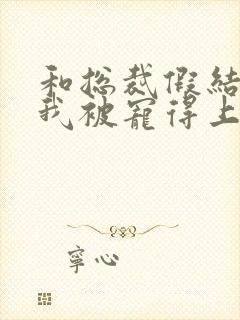 和总裁假结
我被宠得上
寧心